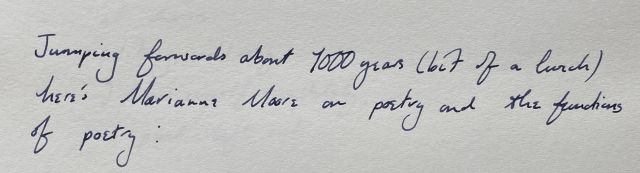 Jumping forwards about 1000 years (bit of a lurch)
here's Marianne Moore on poetry and the functions
of poetry: